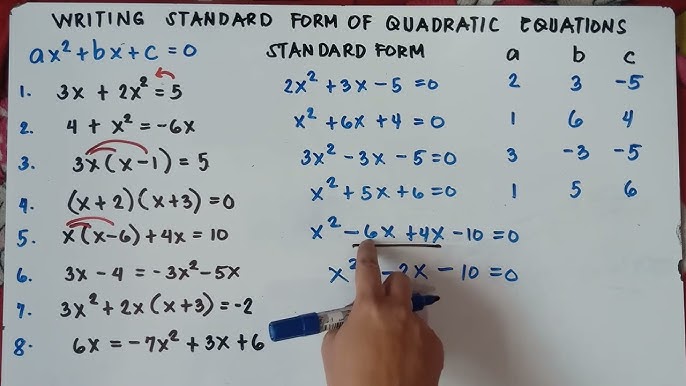 WRITING STANDARD FORM OF QUADRATIC EQUATIONS
ax² + bx + c = 0 STANDARD FORM a b c
1. 3x + 2x² = 5 2x² + 3x - 5 = 0 2 3 -5
2. 4 + x² = -6x x² + 6x + 4 = 0 1 6 4
3. 3x(x-1) = 5 3x² - 3x - 5 = 0 3 -3 -5
4. (x+2)(x+3) = 0 x² + 5x + 6 = 0 1 5 6
5. x(x-6) + 4x = 10 x² - 6x + 4x - 10 = 0
6. 3x - 4 = -3x² - 5x x² - 2x - 10 = 0
7. 3x² + 2x(x+3) = -2
8. 6x = -7x² + 3x + 6